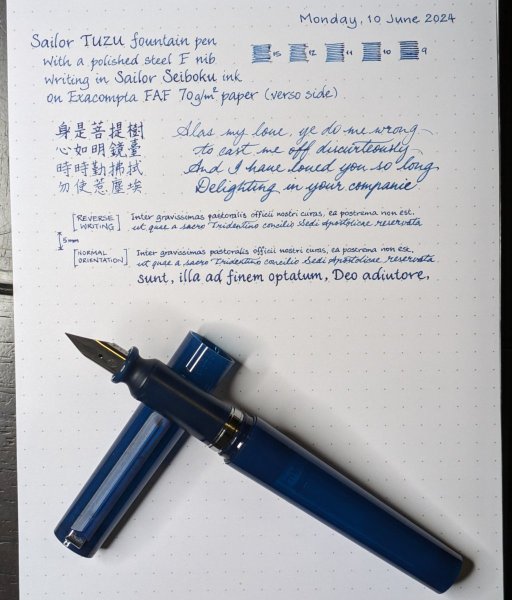 Monday, 10 June 2024
Sailor TUZU fountain pen
with a polished steel F nib
writing in Sailor Seiboku ink
on Exacompta FAF 70g/m² paper (verso side)
15 12 11 10 9
身是菩提樹
心如明鏡臺
時時勤拂拭
勿使惹塵埃
Alas my love, ye do me wrong
to cast me off discurteously
And I have loved you so long
Delighting in your companie
[REVERSE WRITING]
Inter gravissimas pastoralis officii nostri curas, ea postrema non est,
ut quae a sacro Tridentino concilio Sedi Apostolicae reservata
5mm
[NORMAL ORIENTATION]
Inter gravissimas pastoralis officii nostri curas, ea postrema non est,
ut quae a sacro Tridentino concilio Sedi Apostolicae reservata
sunt, illa ad finem optatum, Deo adiutore,